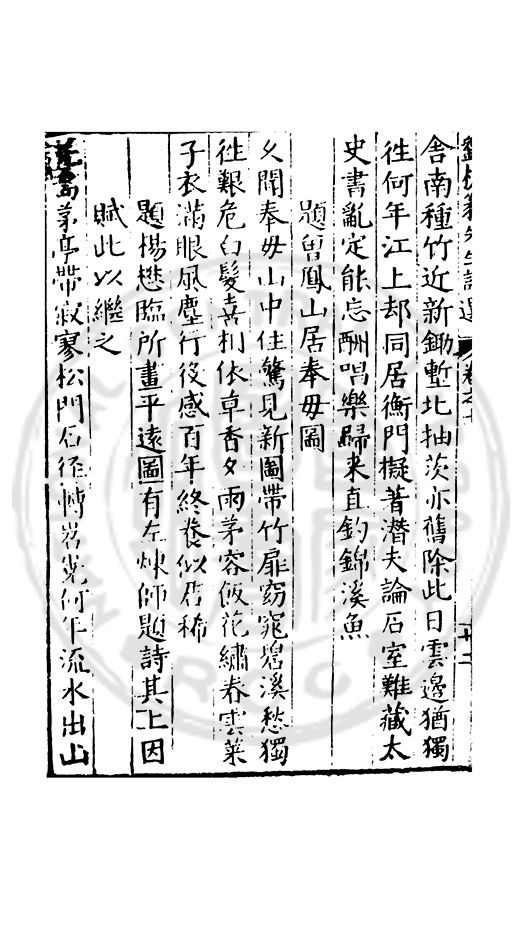 先生詩選 卷之十
十二
舍南種竹近新鋤塹北抽茨亦舊除此日雲邊猶獨
往何年江上却同居衡門擬著潛夫論石室難藏太
史書亂定能忘酬唱樂歸来直釣錦溪魚
題曾鳳山居奉母圖
久聞奉母山中住驚見新圖帶竹扉窈窕碧溪愁獨
往艱危白髮喜相依草香夕雨茅容飯花繡春雲萊
子衣滿眼風塵行役感百年終養似君稀
題楊懋臨所畫平遠圖有左煉師題詩其上因
賦此以繼之
茅亭帶寂寥松門石徑轉岧嶤何年流水出山